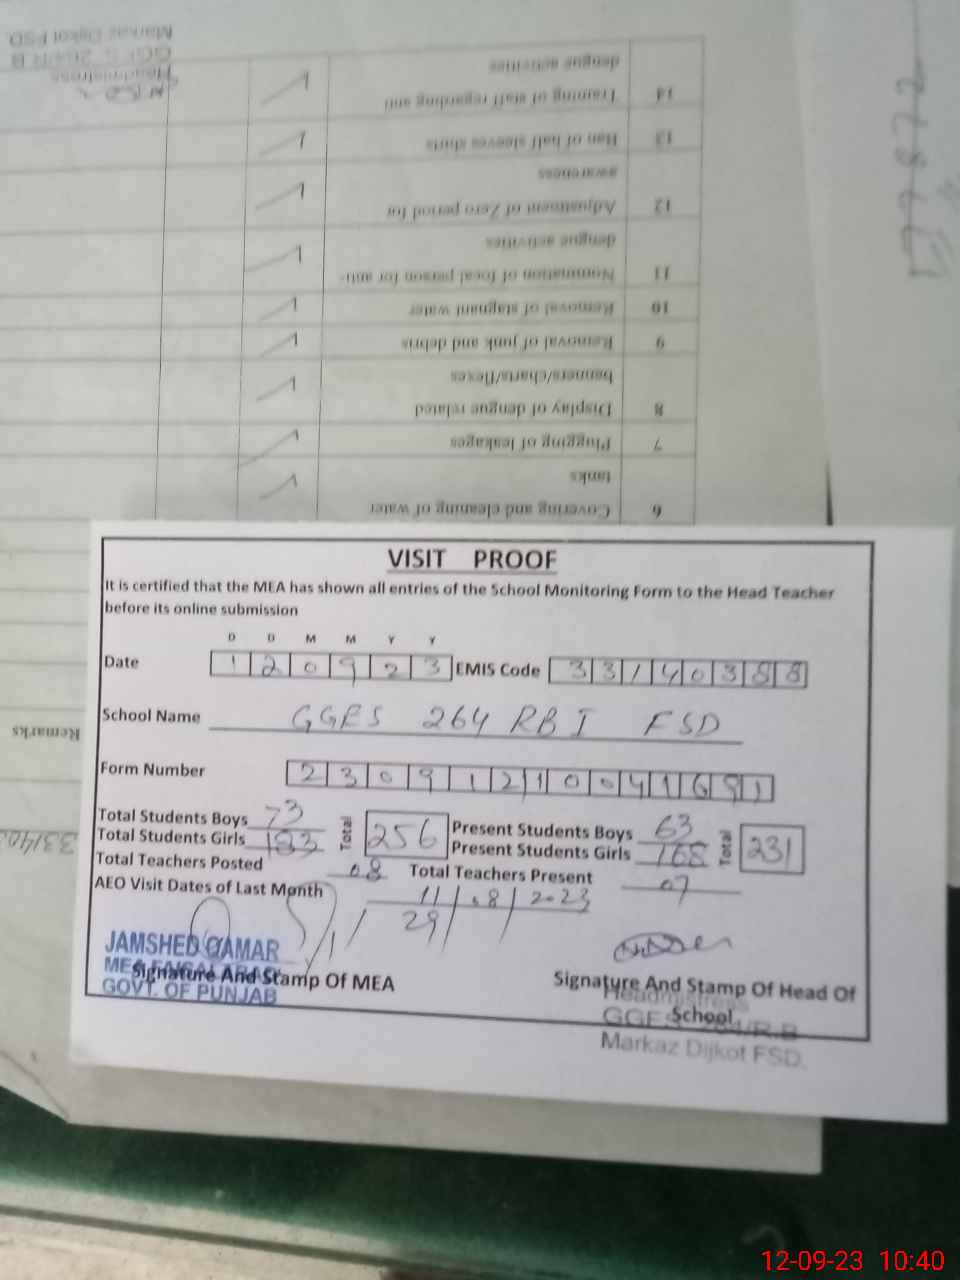 VISIT PROOF
It is certified that the MEA has shown all entries of the School Monitoring Form to the Head Teacher
before its online submission
D D M M Y Y
Date 1 2 0 9 2 3 EMIS Code 3 3 1 4 0 3 8 8
School Name GGES 264 RB I FSD
Form Number 2 3 0 9 1 2 1 0 0 4 1 6 5 1
Total Students Boys 73
Total Students Girls 183
Total 256
Present Students Boys 63
Present Students Girls 168
Total 231
Total Teachers Posted 08 Total Teachers Present 07
AEO Visit Dates of Last Month 11/08/2023
29/
JAMSHED QAMAR
MEA FAISALABAD
GOVT. OF PUNJAB
Signature And Stamp Of MEA
Signature And Stamp Of Head Of
School
Headmistress
GGES 264/R.B
Markaz Dijkot FSD.
6 Covering and cleaning of water
tanks
7 Plugging of leakages
8 Display of dengue related
banners/charts/flexes
9 Removal of junk and debris
10 Removal of stagnant water
11 Nomination of focal person for anti-
dengue activities
12 Adjustment of Zero period for
awareness
13 Ban of half sleeves shirts
14 Training of staff regarding anti
dengue activities
Headmistress
GGES 264/R.B
Markaz Dijkot FSD.
Remarks
12-09-23 10:40